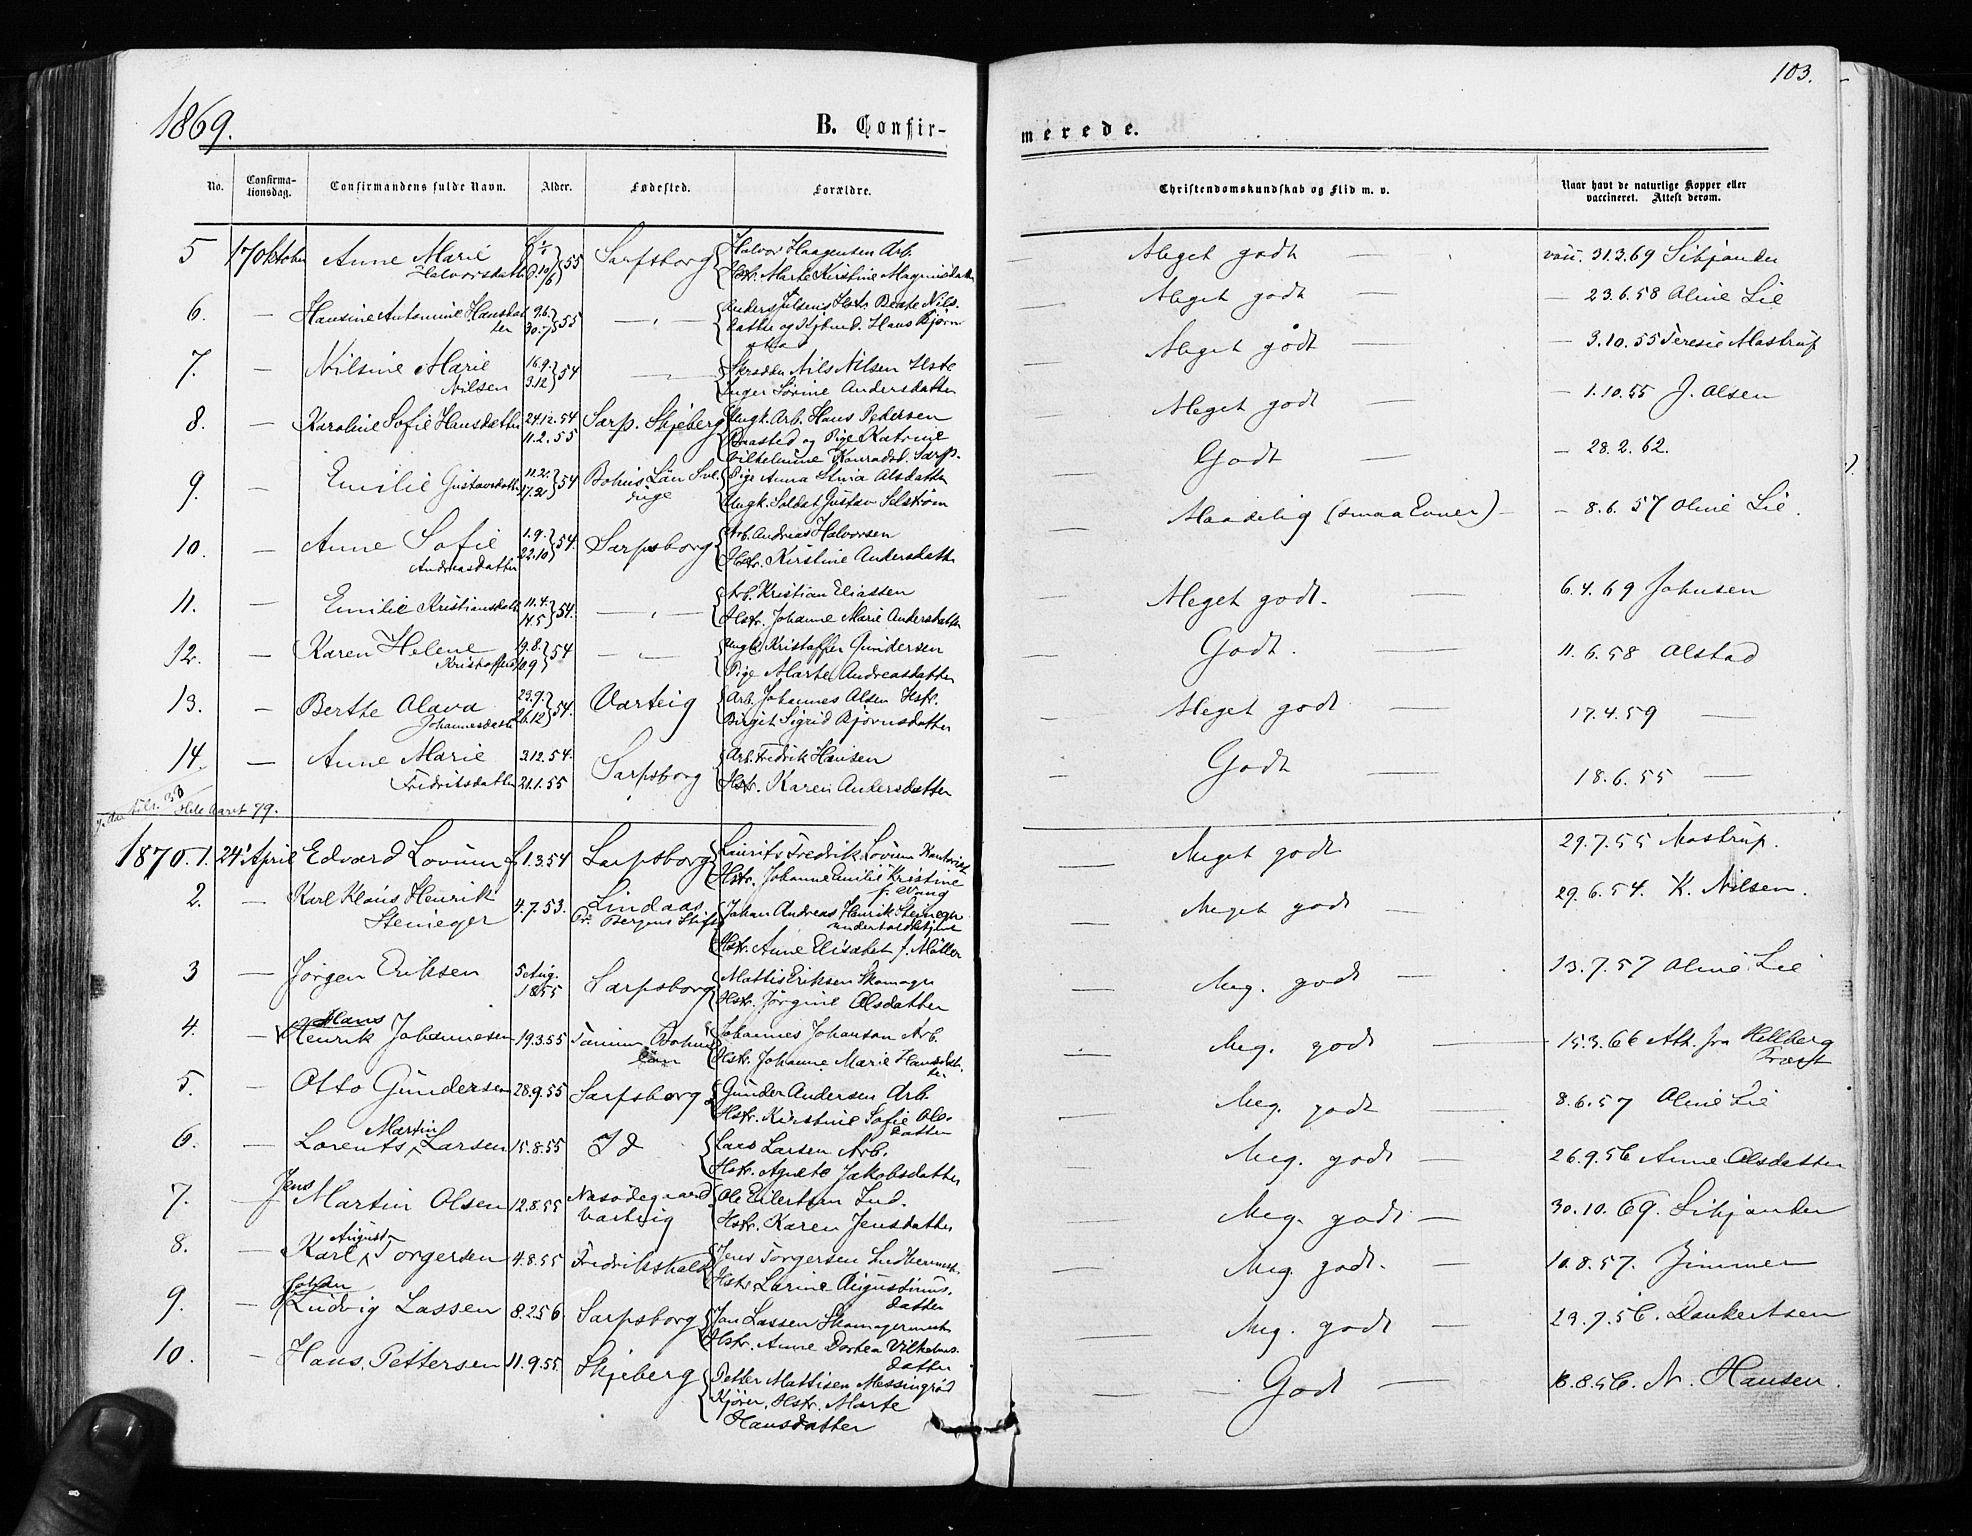 103.
1869.
B. Confir-
merede.
No. Confirma-tionsdag. Confirmandens fulde Navn. Alder. Fødested. Forældre. Christendomskundskab og Flid m. v. Naar havt de naturlige Kopper eller vaccineret. Attest derom.
5 17 Oktober Anne Marie Halvorsdatter 55 Sarpsborg Halvor Haagensen Arb. Hstr. Marte Kirstine Magnusdatter — Meget godt — 31.3.69 Sibjander
6. — Hansine Antomine Hansdatter 9.6. 30.7 55 — Anders Jilsens Hstr. Beate Nilsdatter og Hans Bjørn — Meget godt — 23.6.58 Oline Lie
7. — Nilsine Marie Nilsen 16.9. 3.12 54 — Skrædder Nils Nilsen Hstr. Inger Sørine Andersdatter — Meget godt — 3.10.55 Teresie Mastrup
8. — Karoline Sofie Hansdatter 24.12.54 11.2.55 Sarp. Skjeberg Ungk. Arb. Hans Pedersen Baasted og Pige Katrine Vilhelmine Konradsd. Sarp. — Meget godt — 1.10.55 J. Olsen
9. — Emilie Gustavsdatter 11.2. 17.2 54 Bohus Län Sverige Pige Anna Stina Alsdatter Ungk. Soldat Gustav Selstrøm — Godt — 28.2.62.
10. — Anne Sofie Andreasdatter 1.9. 22.10 54. Sarpsborg Arb. Andreas Halvorsen Hstr. Kirstine Andersdatter — Maadelig (smaa Evner) — 8.6.57 Oline Lie.
11. — Emilie Kristiansdatter 11.4. 14.5 54. — Arb. Kristian Eliassen Hstr. Johanne Marie Andersdatter — Meget godt. — 6.4.69 Johnsen
12. — Karen Helene Kristoffersd. 19.8. 10.9 54 — Ungk. Kristoffer Gundersen Pige Marte Andreasdatter — Godt. — 11.6.58 Alstad
13. — Berthe Olava Johannesdatter 23.9. 26.12 54. Varteig Arb. Johannes Olsen Hstr. Birgit Sigrid Bjørnsdatter — Meget godt — 17.4.59 —
14. — Anne Marie Fredriksdatter 3.12.54. 21.1.55 Sarpsborg Arb. Fredrik Hansen Hstr. Karen Andersdatter — Godt — 18.6.55 —
Hele Aaret 79.
1870. 1. 24 April Edvard Lovum f. 1.3.54 Sarpsborg Laurits Fredrik Lovum Hstr. Johanne Emilie Kristine f. Wung — Meget godt 29.7.55 Mastrup.
2. — Karl Klaus Henrik Steineger 4.7.53. Lindaas Pr. Bergens Stift Johan Andreas Henrik Steineger Hstr. Anne Elisabet f. Möller — Meget godt — 29.6.54. K. Nilsen.
3 — Jørgen Eriksen 5 Aug. 1855 Sarpsborg Mattis Eriksen Skomager Hstr. Jørgine Olsdatter — Meg. godt — 13.7.57 Oline Lie
4. — Hans Henrik Johannesen 19.3.55 Tanum Bohus län Johannes Johanson Arb. Hstr. Johanne Marie Hansdatter — Meg. godt — 15.3.66 Att. fra Hellberg Præst
5. — Otto Gundersen 28.9.55 Sarpsborg Gunder Andersen Arb. Hstr. Kirstine Sofie Olsdatter — Meg. godt — 8.6.57 Oline Lie
6. — Lorents Martin Larsen 15.8.55 Id Lars Larsen Arb. Hstr. Agnete Jakobsdatter — Meg. godt — 26.9.56 Anne Olsdatter
7. — Jens Martin Olsen 12.8.55 Næsødegaard Varteig Ole Eilertsen Ind. Hstr. Karen Jensdatter — Meg. godt — 30.10.69. Sibjander
8. — Karl August Torgersen 4.8.55 Fredrikshald Jens Torgersen Hstr. Larine Augustinusdatter — Meg. godt. — 10.8.57. Zimmer
9. — Johan Ludvig Lassen 8.2.56. Sarpsborg Jan Lassen Skomagermester Hstr. Anne Dortea Vilhelmsdatter — Meg. godt — 29.7.56. Dankertsen
10. — Hans Pettersen 11.9.55. Skjeberg Petter Mattisen Messingrød Kjører, Hstr. Marte Hansdatter — Godt — 18.8.56. N. Hansen.